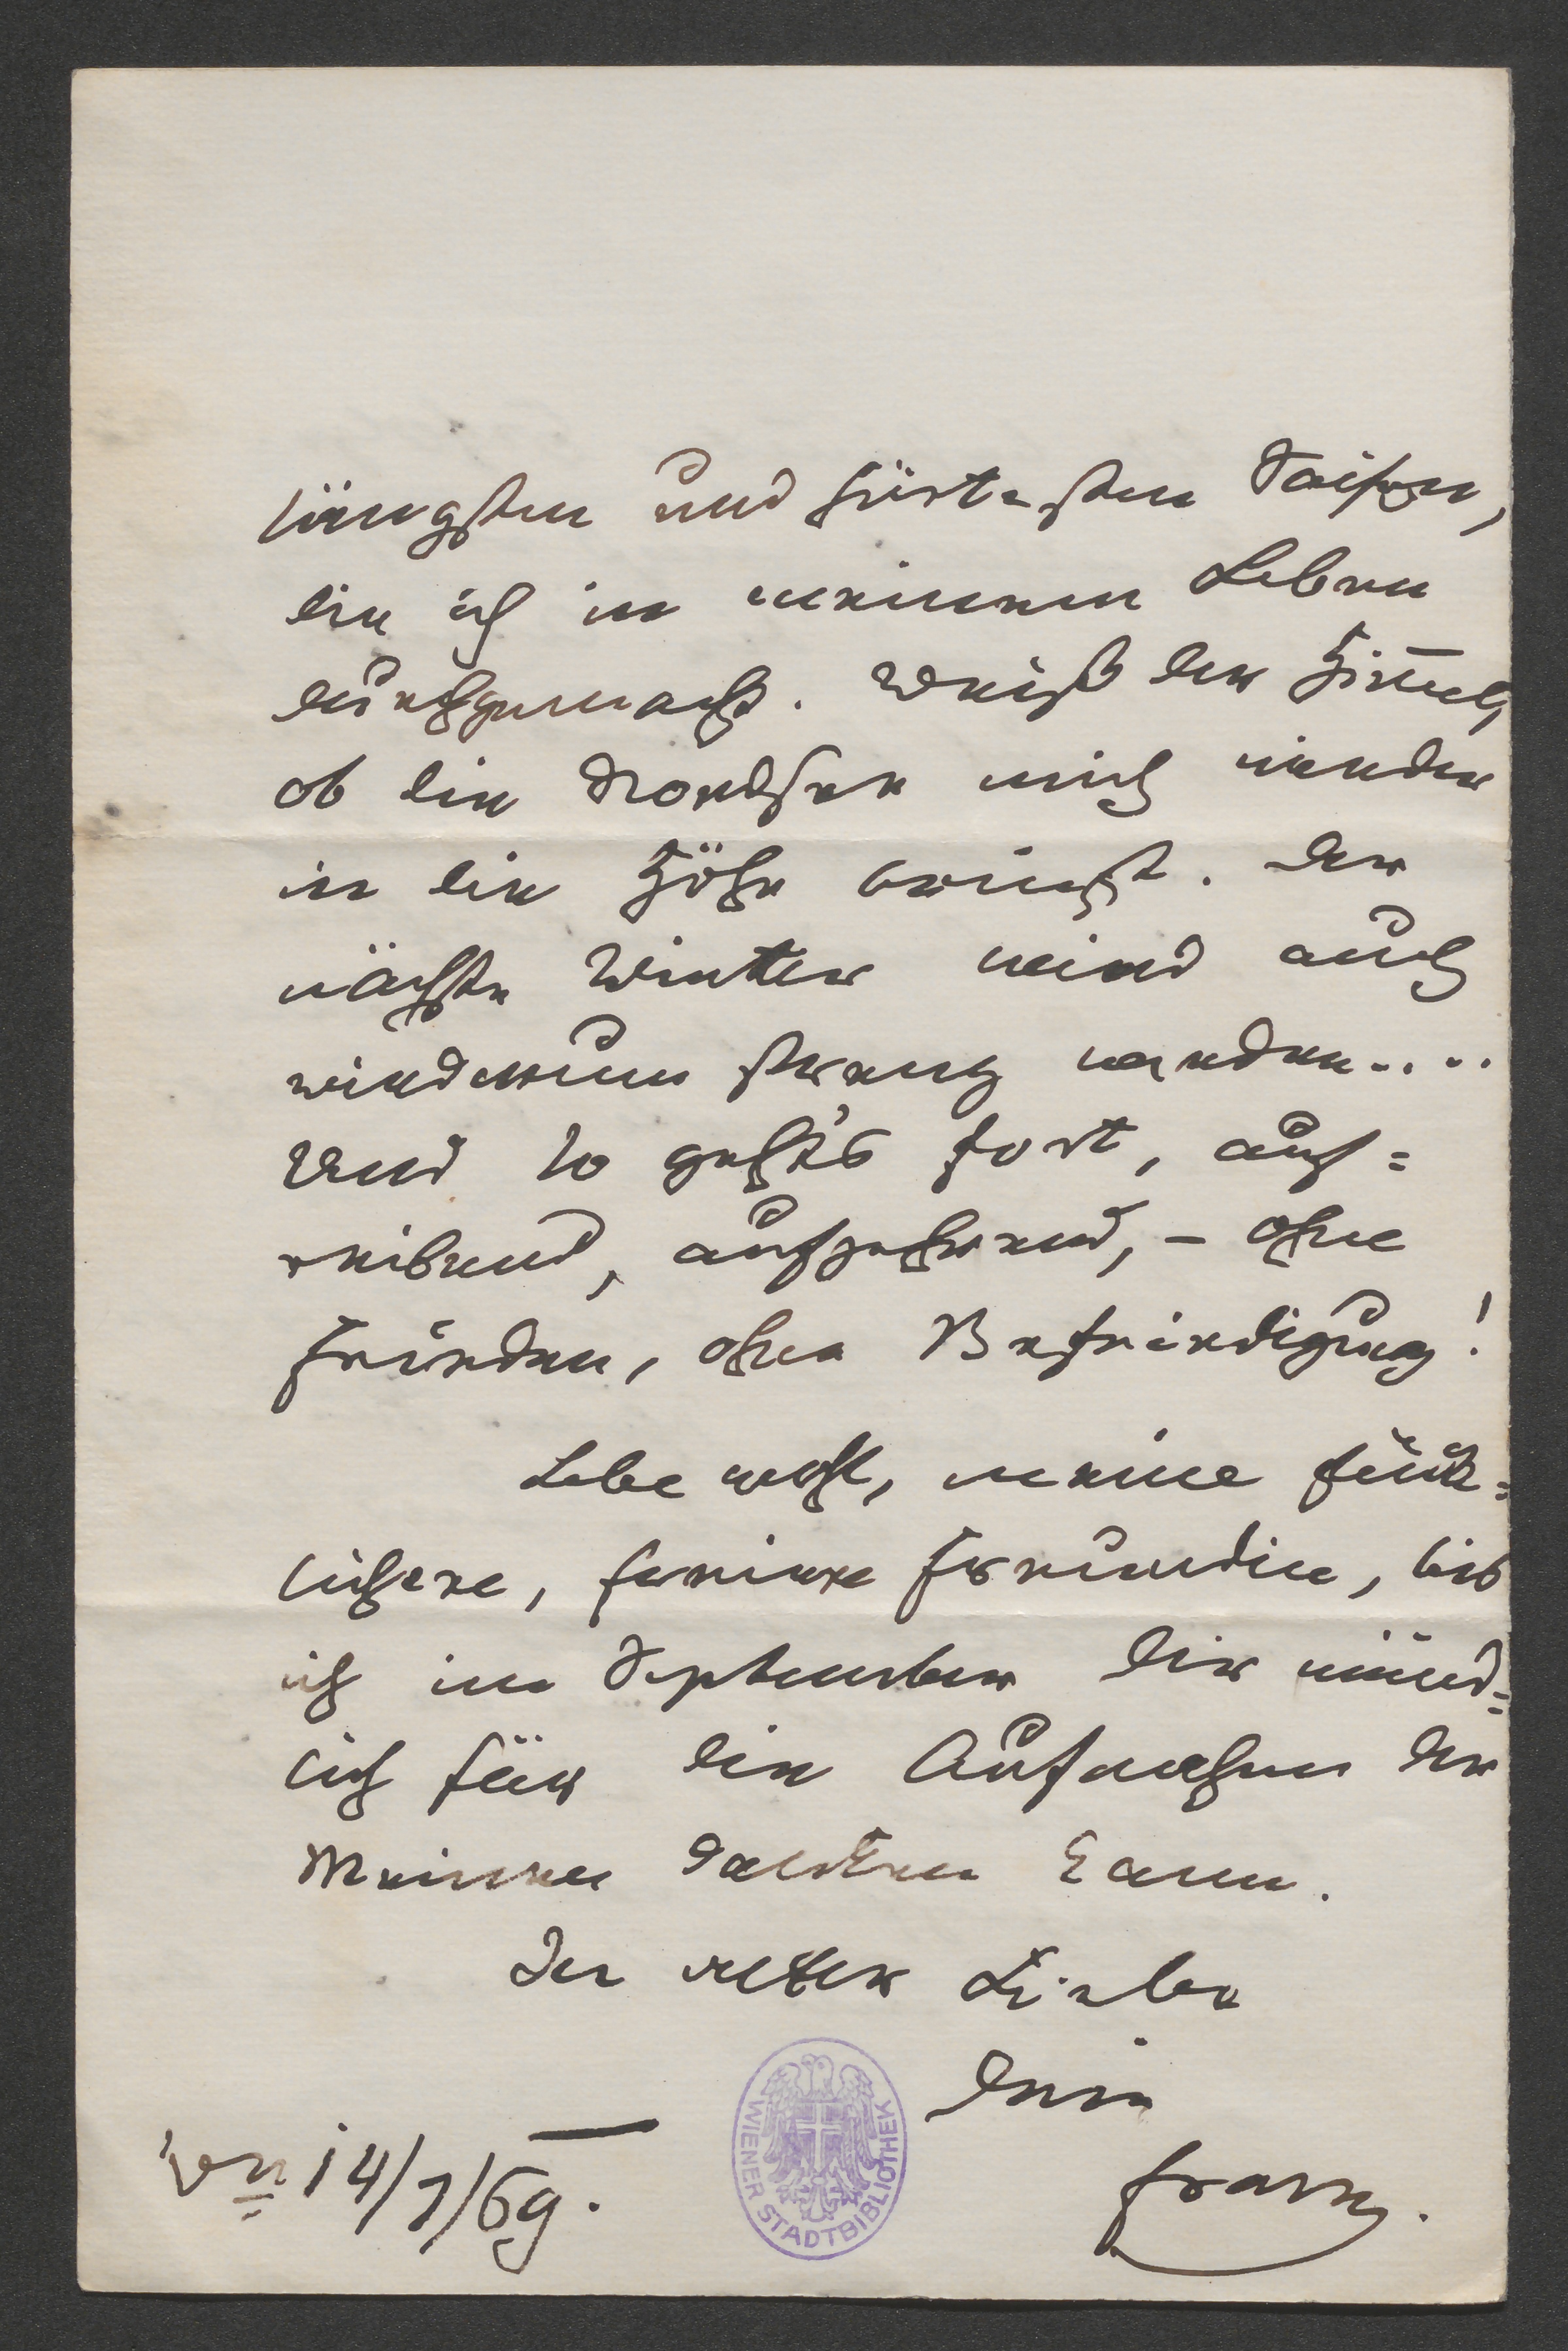 längsten und härtesten Saison,
die ich in meinem Leben
durchgemacht. Weiß der Him̅el,
ob die Nordsee mich wieder
in die Höhe bringt. Der
nächste Winter wird auch
wiederum streng werden....
Und so geht's fort, auf=
reibend, aufzehrend, – ohne
Frieden, ohne Befriedigung!
Lebe wohl, meine
Freundin, bis
ich im September Dir münd=
lich für die Aufnahme der
Meinen danken kann.
In alter Liebe
Dein
Franz.
Wn 14/7/69.
WIENER STADTBIBLIOTHEK